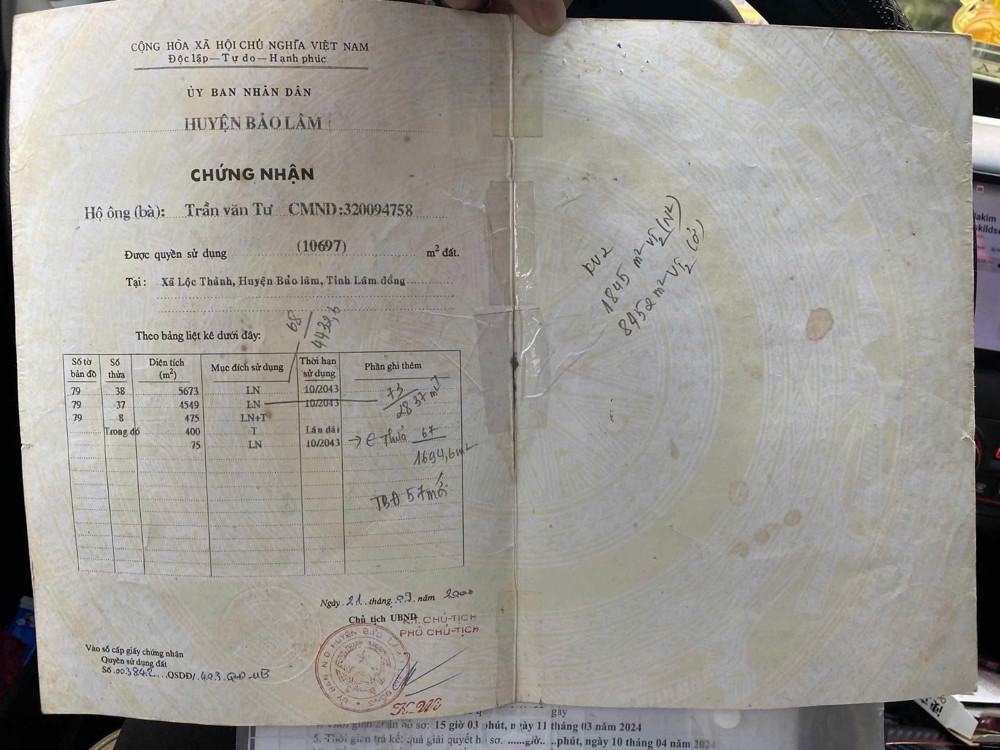 CỘNG HÒA XÃ HỘI CHỦ NGHĨA VIỆT NAM
Độc lập—Tự do—Hạnh phúc
ỦY BAN NHÂN DÂN
HUYỆN BẢO LÂM
CHỨNG NHẬN
Hộ ông (bà): Trần văn Tư CMND:320094758
Được quyền sử dụng (10697) m² đất.
Tại: Xã Lộc Thành, Huyện Bảo lâm, Tỉnh Lâm đồng
Theo bảng liệt kê dưới đây:
68
4432,6
Số tờ bản đồ Số thửa Diện tích (m²) Mục đích sử dụng Thời hạn sử dụng Phần ghi thêm
79 38 5673 LN 10/2043
79 37 4549 LN 10/2043
79 8 475 LN+T
Trong đó 400 T Lâu dài
75 LN 10/2043
73
2837 m²
Thửa 67
1694,6m²
TBĐ 57 mới
KV2
1845 m² VT2 (N2)
8452 m² VT2 (ở)
Ngày 21 tháng 09 năm 2000
Chủ tịch UBND
K.T. CHỦ-TỊCH
PHÓ CHỦ-TỊCH
Vào sổ cấp giấy chứng nhận
Quyền sử dụng đất
Số 003842 QSDĐ/ 403 QHĐ-UB
15 giờ 03 phút, ngày 11 tháng 03 năm 2024
5. Thời gian trả kết quả giải quyết hồ sơ: ......giờ.....phút, ngày 10 tháng 04 năm 2024